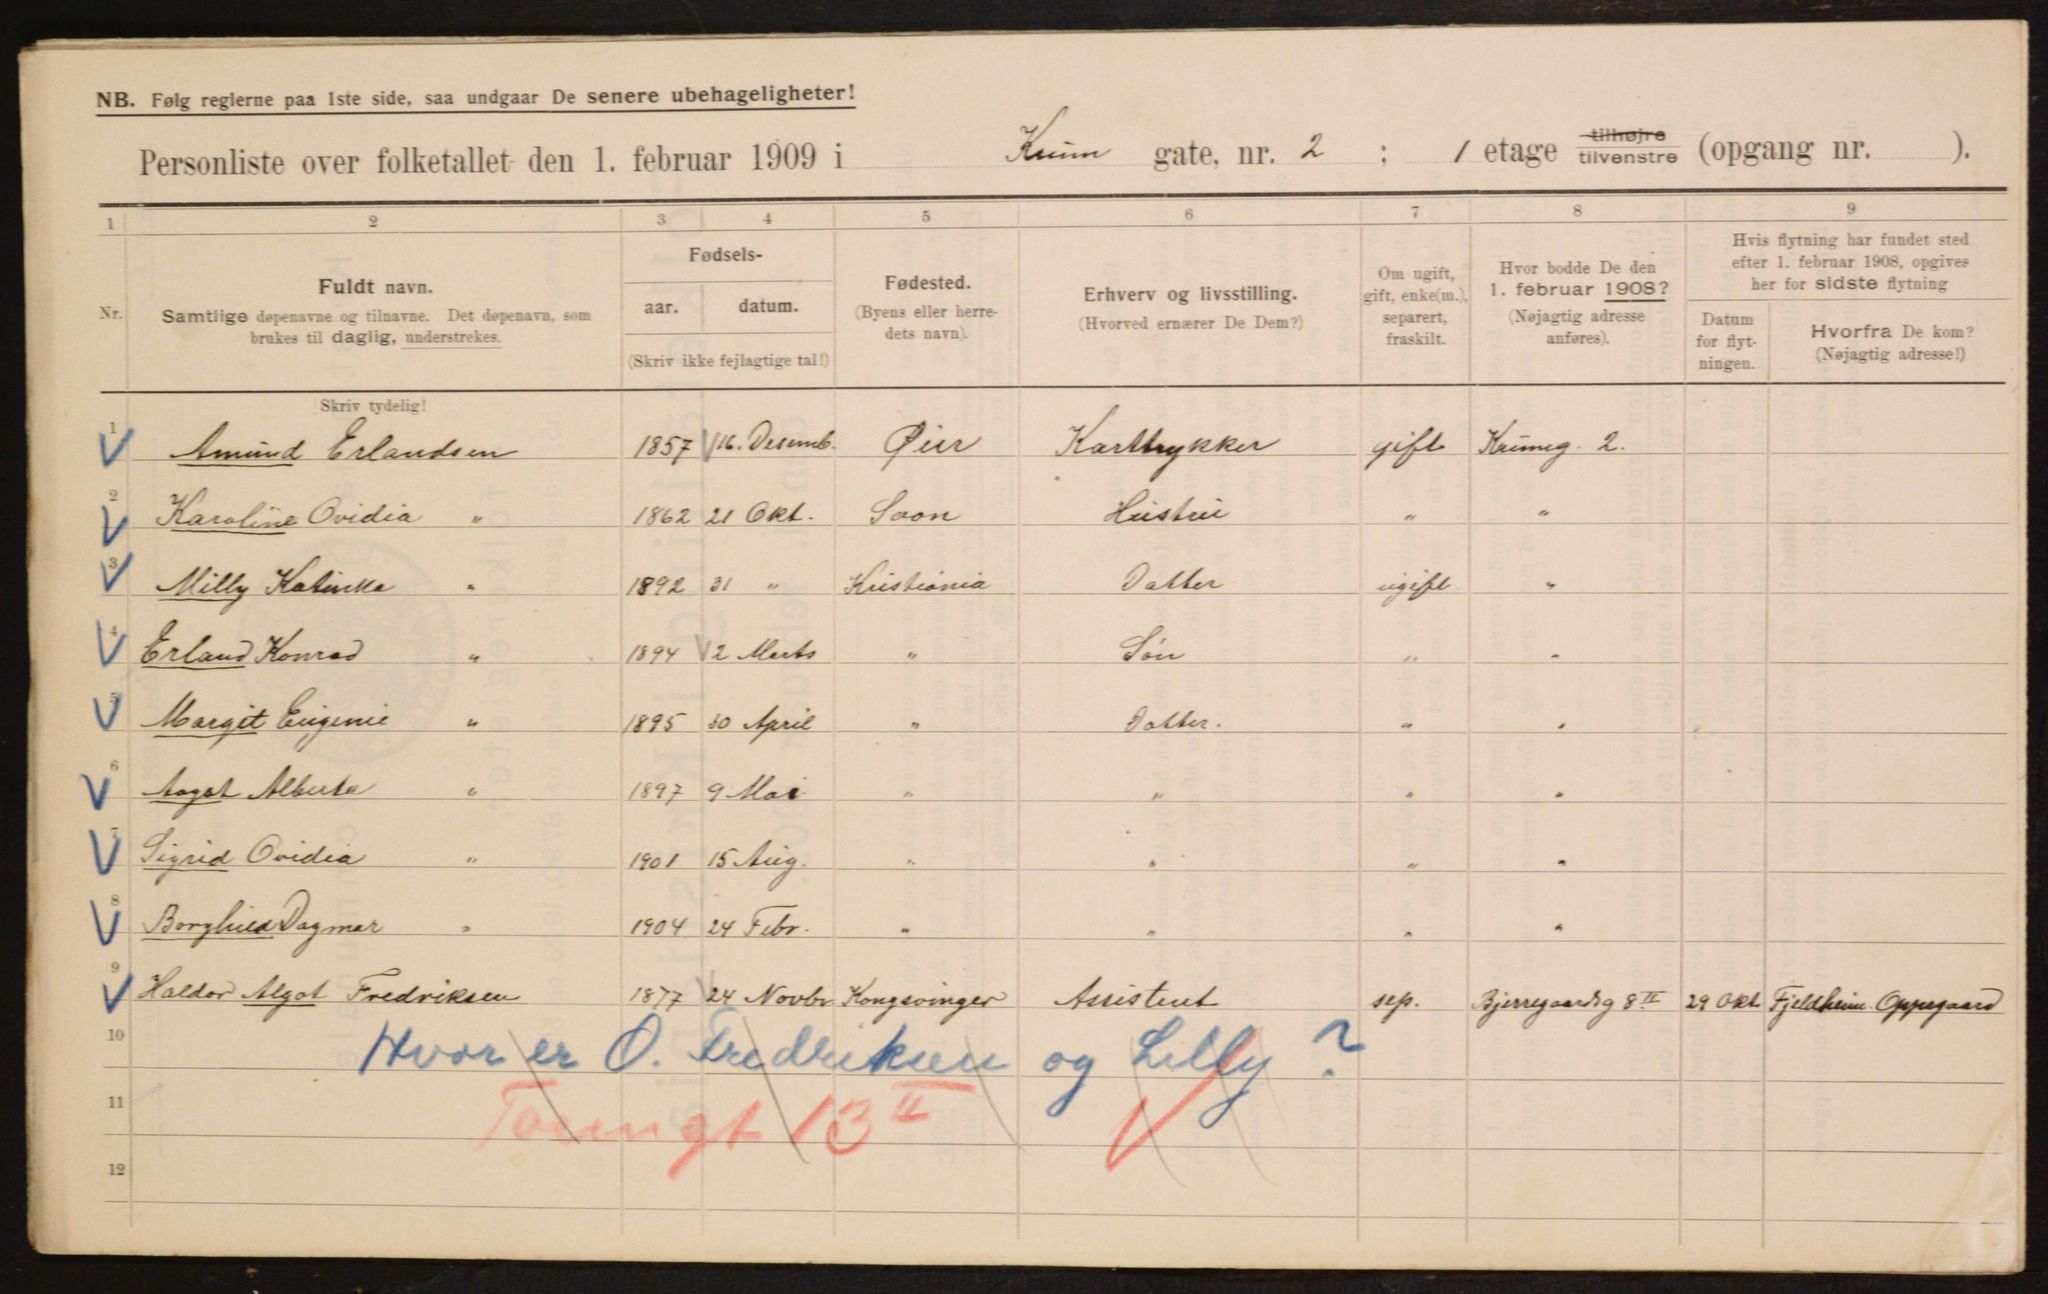 NB. Følg reglerne paa 1ste side, saa undgaar De senere ubehageligheter!
Personliste over folketallet den 1. februar 1909 i Krum gate, nr. 2 ; 1 etage tilhøjre tilvenstre (opgang nr. ).
1 2 3 4 5 6 7 8 9
Nr.
Fuldt navn.
Samtlige døpenavne og tilnavne. Det døpenavn, som
brukes til daglig, understrekes.
Fødsels-
aar. datum.
(Skriv ikke fejlagtige tal!)
Fødested.
(Byens eller herre-
dets navn).
Erhverv og livsstilling.
(Hvorved ernærer De Dem?)
Om ugift,
gift, enke(m.),
separert,
fraskilt.
Hvor bodde De den
1. februar 1908?
(Nøjagtig adresse
anføres).
Hvis flytning har fundet sted
efter 1. februar 1908, opgives
her for sidste flytning
Datum
for flyt-
ningen.
Hvorfra De kom?
(Nøjagtig adresse!)
Skriv tydelig!
1 Amund Erlandsen 1857 16. Desemb. Øier Karttrykker gift Krumg. 2.
2 Karoline Ovidia " 1862 21 Okt. Soon Hustru " "
3 Milly Katinka " 1892 31 " Kristiania Datter ugift "
4 Erland Konrad " 1894 2 Marts " Søn " "
5 Margit Eugenie " 1895 30 April " Datter. " "
6 Aagot Alberta " 1897 9 Mai " " " "
7 Sigrid Ovidia " 1901 15 Aug. " " " "
8 Borghild Dagmar " 1904 24 Febr. " " " "
9 Haldor Algot Fredriksen 1877 24 Novbr Kongsvinger Assistent sep. Bjerregaardsg 8 II 29 Okt Fjeldheim Oppegaard
10 Hvor er O. Fredriksen og Lilly ?
11 13 II
12